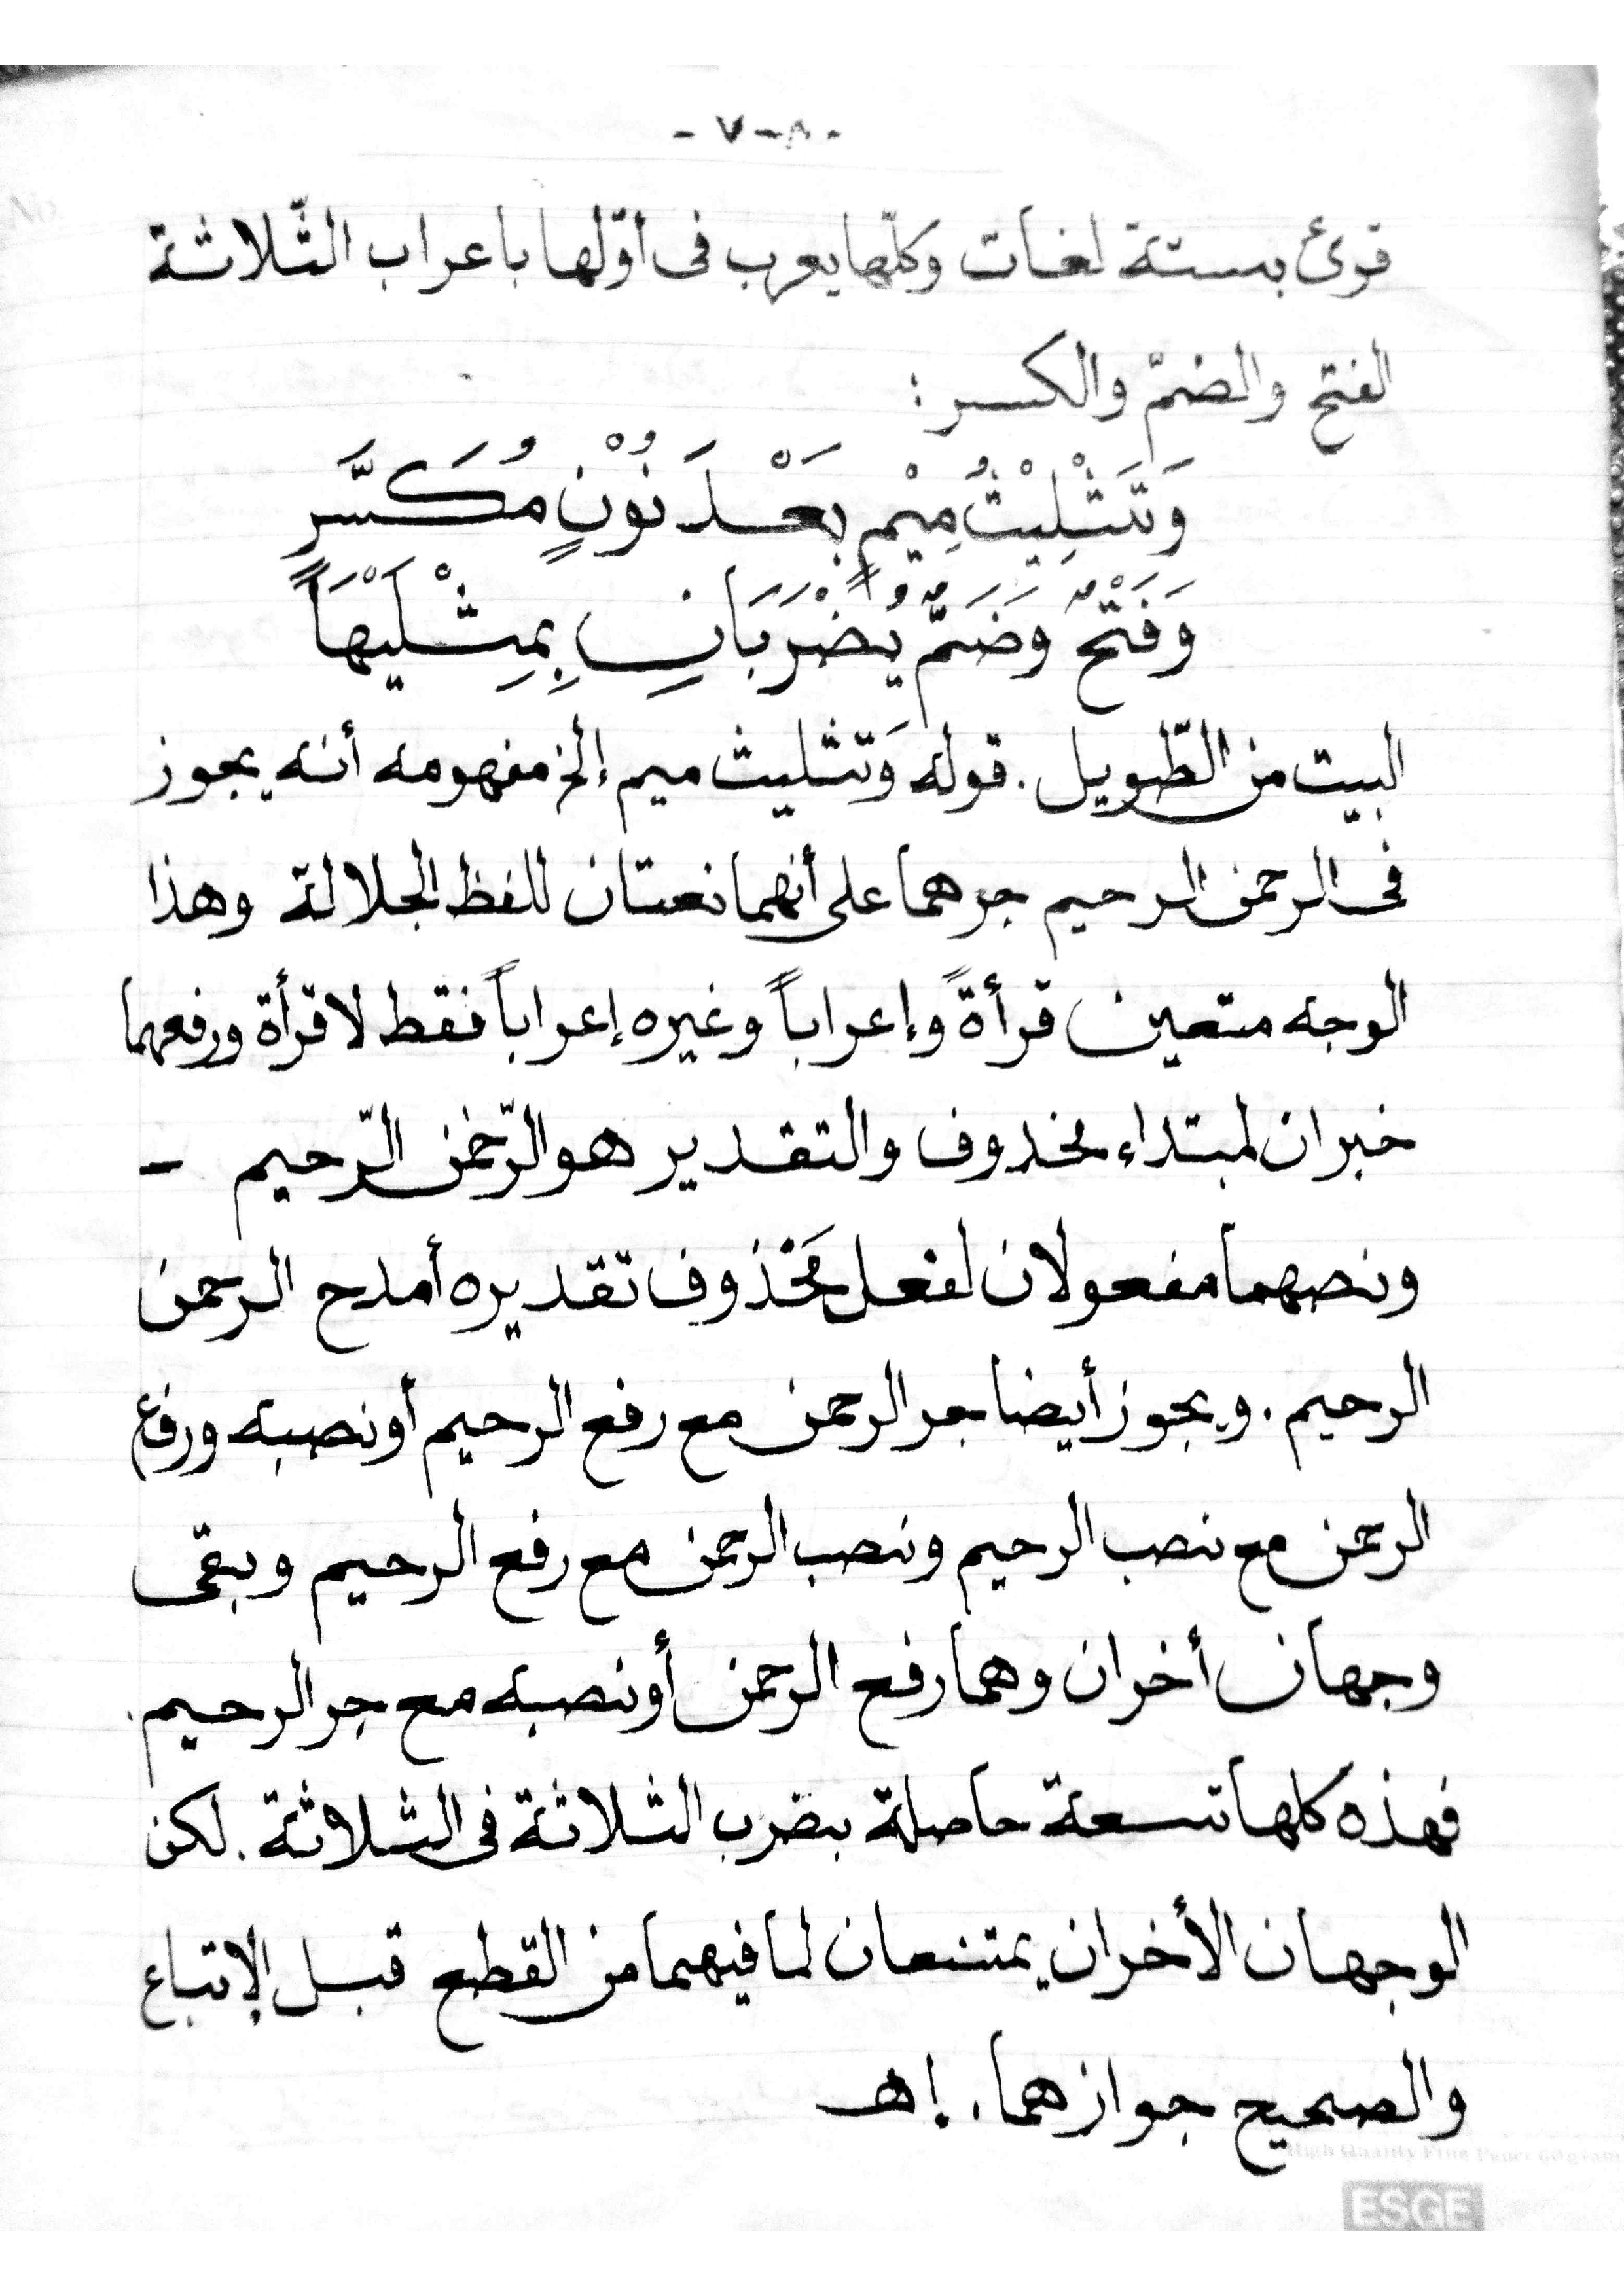 - ٧-٨ -
قرئ بستة لغات وكلّها يعرب فى أوّلها باعراب الثّلاثة
الفتح والضمّ والكسر :
وَتَثْلِيْثُ مِيْمٍ بَعْدَ نُوْنٍ مُكَسَّرٍ
وَفَتْحٌ وَضَمٌّ يُضْرَبَانِ بِمِثْلَيْهَا
البيت من الطّويل . قوله وَتثليث ميم إلخ مفهومه أنه يجوز
فى الرحمن الرحيم جرهما على أنهما نعتان للفظ الجلالة وهذا
الوجه متعين قرأةً وإعراباً وغيره إعراباً فقط لا قرأة ورفعهما
خبران لمبتداء مخدوف والتقدير هو الرّحمن الرّحيم -
ونصبهما مفعولان لفعل مَحْذوف تقديره أمدح الرحمن
الرحيم . ويجوز أيضا جر الرحمن مع رفع الرحيم أو نصبه ورفع
الرحمن مع نصب الرحيم ونصب الرحمن مع رفع الرحيم وبقى
وجهان أخران وهما رفع الرحمن أو نصبه مع جر الرحيم .
فهذه كلها تسعة حاصلة بضرب الثلاثة فى الثلاثة . لكن
الوجهان الأخران يمتنعان لما فيهما من القطع قبل الإتباع
والصحيح جوازهما . إهـ
High Quality Fine Paper
ESGE